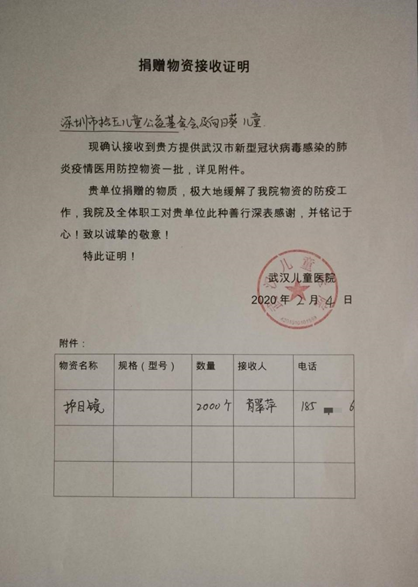 捐赠物资接收证明
深圳市拾玉儿童公益基金会及向日葵儿童
现确认接收到贵方提供武汉市新型冠状病毒感染的肺
炎疫情医用防控物资一批，详见附件。
贵单位捐赠的物质，极大地缓解了我院物资的防疫工
作，我院及全体职工对贵单位此种善行深表感谢，并铭记于
心！致以诚挚的敬意！
特此证明！
武汉儿童医院
2020 年 2 月 4 日
附件：
物资名称 规格（型号） 数量 接收人 电话
护目镜 2000个 肖翠萍 185 6